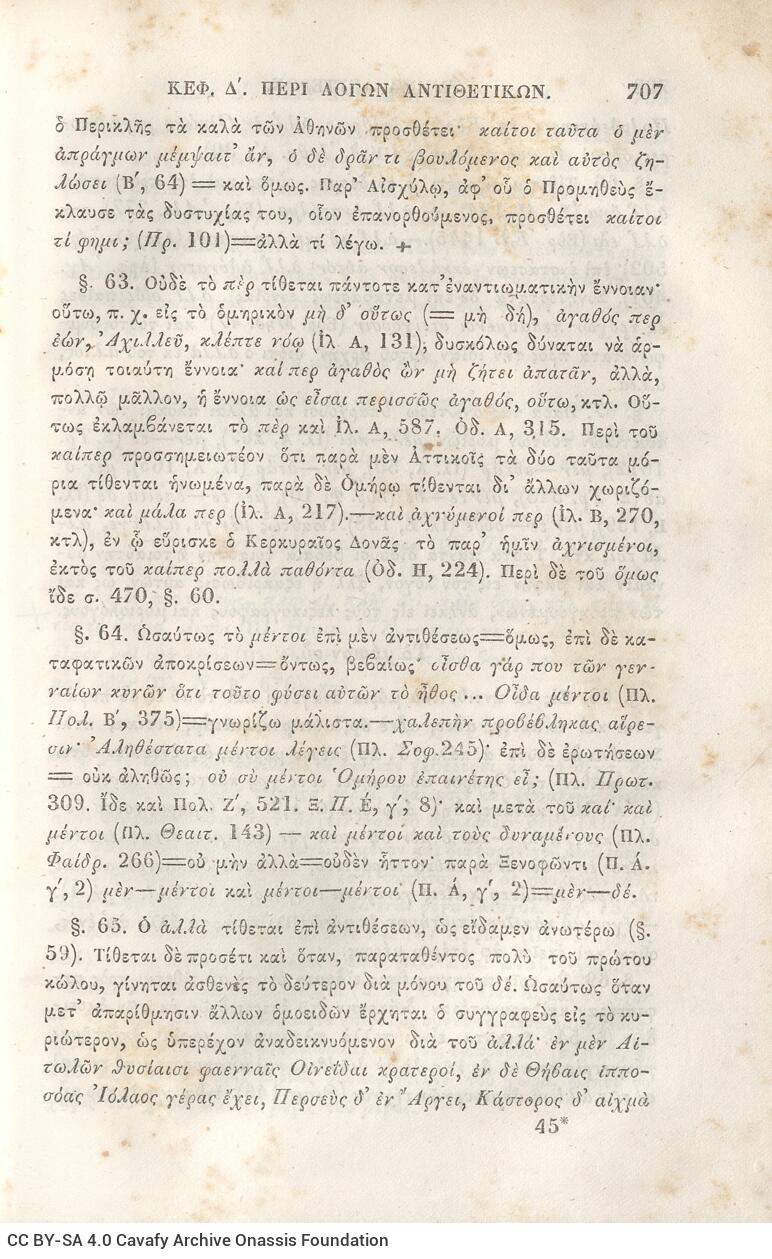 ΚΕΦ. Δʹ. ΠΕΡΙ ΛΟΓΩΝ ΑΝΤΙΘΕΤΙΚΩΝ. 707
ὁ Περικλῆς τὰ καλὰ τῶν Ἀθηνῶν προσθέτει· καίτοι ταῦτα ὁ μὲν
ἀπράγμων μέμψαιτ' ἂν, ὁ δὲ δρᾶν τι βουλόμενος καὶ αὐτὸς ζη-
λώσει (Βʹ, 64) = καὶ ὅμως. Παρ' Αἰσχύλῳ, ἀφ' οὗ ὁ Προμηθεὺς ἔ-
κλαυσε τὰς δυστυχίας του, οἷον ἐπανορθούμενος, προσθέτει καίτοι
τί φημι; (Πρ. 101)=ἀλλὰ τί λέγω.
§. 63. Οὐδὲ τὸ πὲρ τίθεται πάντοτε κατ' ἐναντιωματικὴν ἔννοιαν·
οὕτω, π. χ. εἰς τὸ ὁμηρικὸν μὴ δ' οὕτως (= μὴ δὴ), ἀγαθός περ
ἐὼν, Ἀχιλλεῦ, κλέπτε νόῳ (Ἰλ Α, 131), δυσκόλως δύναται νὰ ἁρ-
μόσῃ τοιαύτη ἔννοια· καί περ ἀγαθὸς ὢν μὴ ζήτει ἀπατᾶν, ἀλλὰ,
πολλῷ μᾶλλον, ἡ ἔννοια ὡς εἶσαι περισσῶς ἀγαθός, οὕτω, κτλ. Οὕ-
τως ἐκλαμβάνεται τὸ πὲρ καὶ Ἰλ. Α, 587. Ὀδ. Α, 315. Περὶ τοῦ
καίπερ προσσημειωτέον ὅτι παρὰ μὲν Ἀττικοῖς τὰ δύο ταῦτα μό-
ρια τίθενται ἡνωμένα, παρὰ δὲ Ὁμήρῳ τίθενται δι' ἄλλων χωριζό-
μενα· καὶ μάλα περ (Ἰλ. Α, 217).—καὶ ἀχνύμενοί περ (Ἰλ. Β, 270,
κτλ), ἐν ᾧ εὕρισκε ὁ Κερκυραῖος Δονᾶς τὸ παρ' ἡμῖν ἀχνισμένοι,
ἐκτὸς τοῦ καίπερ πολλὰ παθόντα (Ὀδ. Η, 224). Περὶ δὲ τοῦ ὅμως
ἴδε σ. 470, §. 60.
§. 64. Ὡσαύτως τὸ μέντοι ἐπὶ μὲν ἀντιθέσεως=ὅμως, ἐπὶ δὲ κα-
ταφατικῶν ἀποκρίσεων=ὄντως, βεβαίως· οἶσθα γάρ που τῶν γεν-
ναίων κυνῶν ὅτι τοῦτο φύσει αὐτῶν τὸ ἦθος... Οἶδα μέντοι (Πλ.
Πολ. Βʹ, 375)=γνωρίζω μάλιστα.—χαλεπὴν προβέβληκας αἵρε-
σιν· Ἀληθέστατα μέντοι λέγεις (Πλ. Σοφ. 245)· ἐπὶ δὲ ἐρωτήσεων
= οὐκ ἀληθῶς; οὐ σὺ μέντοι Ὁμήρου ἐπαινέτης εἶ; (Πλ. Πρωτ.
309. Ἴδε καὶ Πολ. Ζʹ, 521. Ξ. Π. Έ, γʹ, 8)· καὶ μετὰ τοῦ καί· καὶ
μέντοι (Πλ. Θεαιτ. 143) — καὶ μέντοι καὶ τοὺς δυναμένους (Πλ.
Φαίδρ. 266)=οὐ μὴν ἀλλὰ=οὐδὲν ἧττον· παρὰ Ξενοφῶντι (Π. Ά.
γʹ, 2) μὲν—μέντοι καὶ μέντοι—μέντοι (Π. Ά, γʹ, 2)=μὲν—δέ.
§. 65. Ὁ ἀλλὰ τίθεται ἐπὶ ἀντιθέσεων, ὡς εἴδαμεν ἀνωτέρω (§.
59). Τίθεται δὲ προσέτι καὶ ὅταν, παραταθέντος πολὺ τοῦ πρώτου
κώλου, γίνηται ἀσθενὲς τὸ δεύτερον διὰ μόνου τοῦ δέ. Ὡσαύτως ὅταν
μετ' ἀπαρίθμησιν ἄλλων ὁμοειδῶν ἔρχηται ὁ συγγραφεὺς εἰς τὸ κυ-
ριώτερον, ὡς ὑπερέχον ἀναδεικνυόμενον διὰ τοῦ ἀλλά· ἐν μὲν Αἰ-
τωλῶν θυσίαισι φαενναῖς Οἰνεΐδαι κρατεροί, ἐν δὲ Θήβαις ἱππο-
σόας Ἰόλαος γέρας ἔχει, Περσεὺς δ' ἐν Ἄργει, Κάστορος δ' αἰχμὰ
45*
CC BY-SA 4.0 Cavafy Archive Onassis Foundation